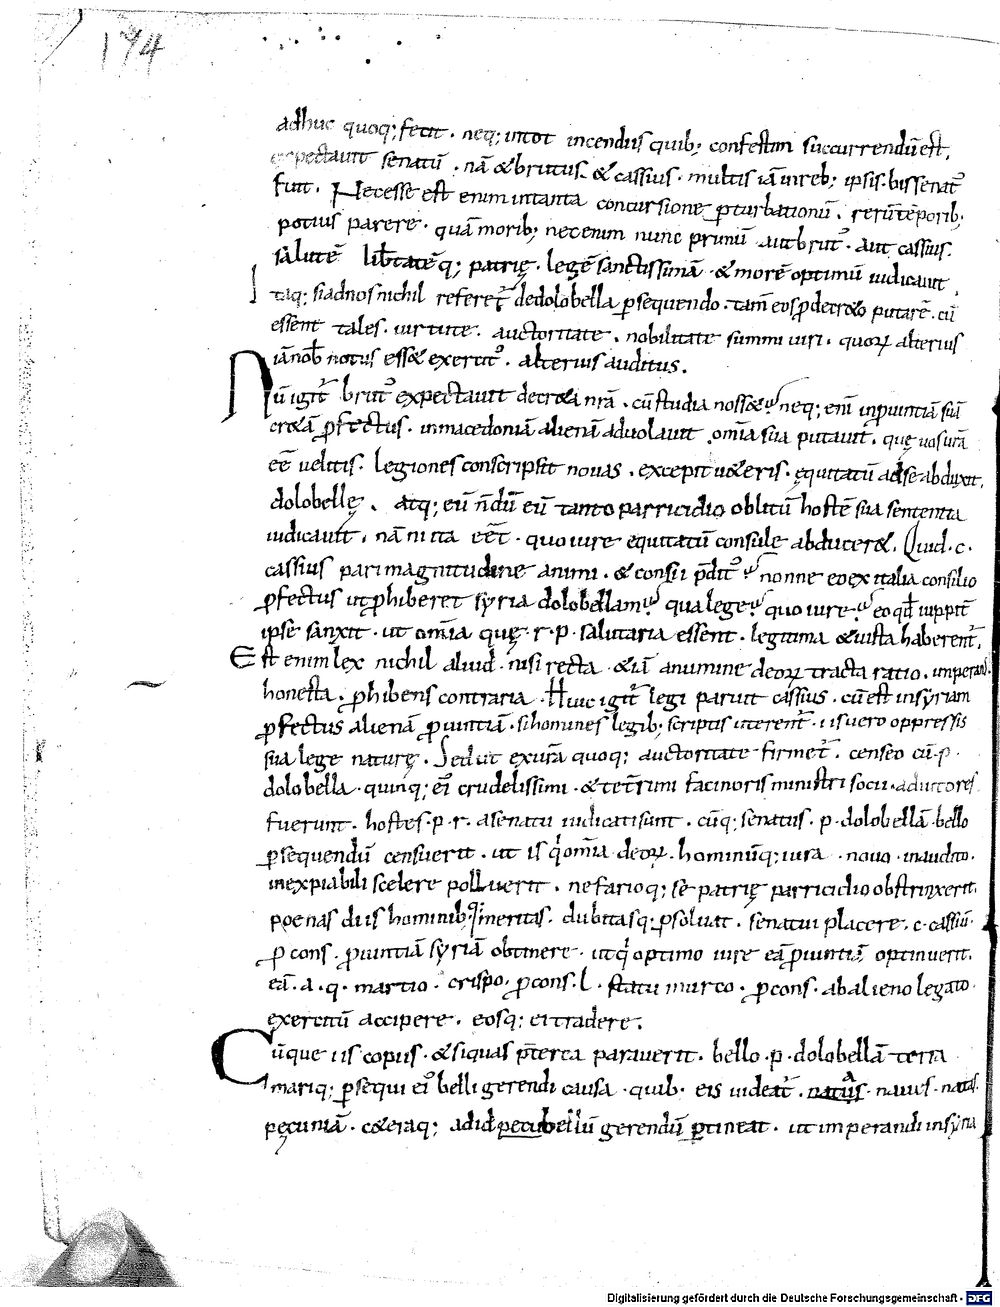 174
adhuc quoq; fecit . neq; intot incendiis quib; confestim succurrendū est,
expectavit senatū . nā & brutus . & cassius . multis iā inreb; ipsis . bis senat᾿
fuit . Necesse est enim intanta concursione ꝑturbationū . rerū tēporib;
potius parere . quā morib; nec enim nunc primū aut brut᾿ . aut cassius .
salutē libtatēq; patrię . legē sanctissimā . & morē optimū iudicavit .
Itaq; si ad nos nichil referet᾿ dedolobella ꝑsequendo . tam̄ eos ꝓ decr&o putarē . cū
essent tales . virtute . auctoritate . nobilitate summi viri . quoꝝ alterius
iā nob̄ notus ess& exercit᾿ . alterius auditus .
Nū igit᾿ brut᾿ expectavit decr&a nr̄a . cū studia noss& neq; eni in ꝓvintiā suā
cr&ā ꝓfectus . inmacedoniā alienā advolavit . om̄ia sua putavit . quę vos vr̄a
eē velitis . legiones conscripsit novas . excepit v&eris . ęquitatū ad se abduxit,
dolobellę . atq; eū n̄dū eū tanto parricidio oblitū hostē sua sententia
iudicavit . nā ni ita eēt . quo iure equitatū consule abducer& . Quid . c .
cassius pari magnitudine animi . & consii p̄dit᾿ nonne eo ex italia consilio
ꝓfectus ut ꝓhiberet syria dolobellam qua lege quo iure eo qd̄ iuppit᾿
ipse sanxit . ut om̄ia quę . r . p . salutaria essent . legitima & iusta haberent᾿,
Est enim lex nichil aliud . nisi recta . & iā anumine deoꝝ tracta ratio . imperans
honesta . ꝓhibens contraria . Huic igit᾿ legi paruit cassius . cū est insyriam
ꝓfectus alienā ꝓvintiā . si homines legib; scriptis uterent᾿ . iis vero oppressis
sua lege naturę . Sed ut ex vr̄a quoq; auctoritate firmet᾿ . censeo cū . p .
dolobella . quiq; ei᾿ crudelissimi . & tet̄rimi facinoris ministri socii . adiutores
fuerunt . hostes . p . r . asenatu iudicati sunt . cūq; senatus . p . dolobellā . bello
ꝑsequendū censuerit . ut is q̇ om̄ia deoꝝ . hominūq; iura . novo . inaudito .
inexpiabili scelere polluerit . nefarioq; se patrię parricidio obstrinxerit,
poenas diis hominib; q meritas . dubitasq; ꝑsolvat . senatui placere . c . cassiū .
ꝓ cons . ꝓvintiā syriā obtinere . ut q̇ optimo iure eā ꝓvintiā optinuerit .
eā . a . q . martio . crispo . ꝓcons . l . statu murco . ꝓcons . ab alieno legato .
exercitū accipere . eosq; ei tradere .
Cūque iis copiis . & si quas p̄terea paraverit . bello . p . dolobellā terra
mariq; ꝑsequi ei᾿ belli gerendi causa . quib; eis videat᾿ . natus . naves . nautas .
pęcuniā . c&eraq; ad id bellū gerendū ꝑtineat . ut imperandi insyria
Digitalisierung gefördert durch die Deutsche Forschungsgemeinschaft - DFG